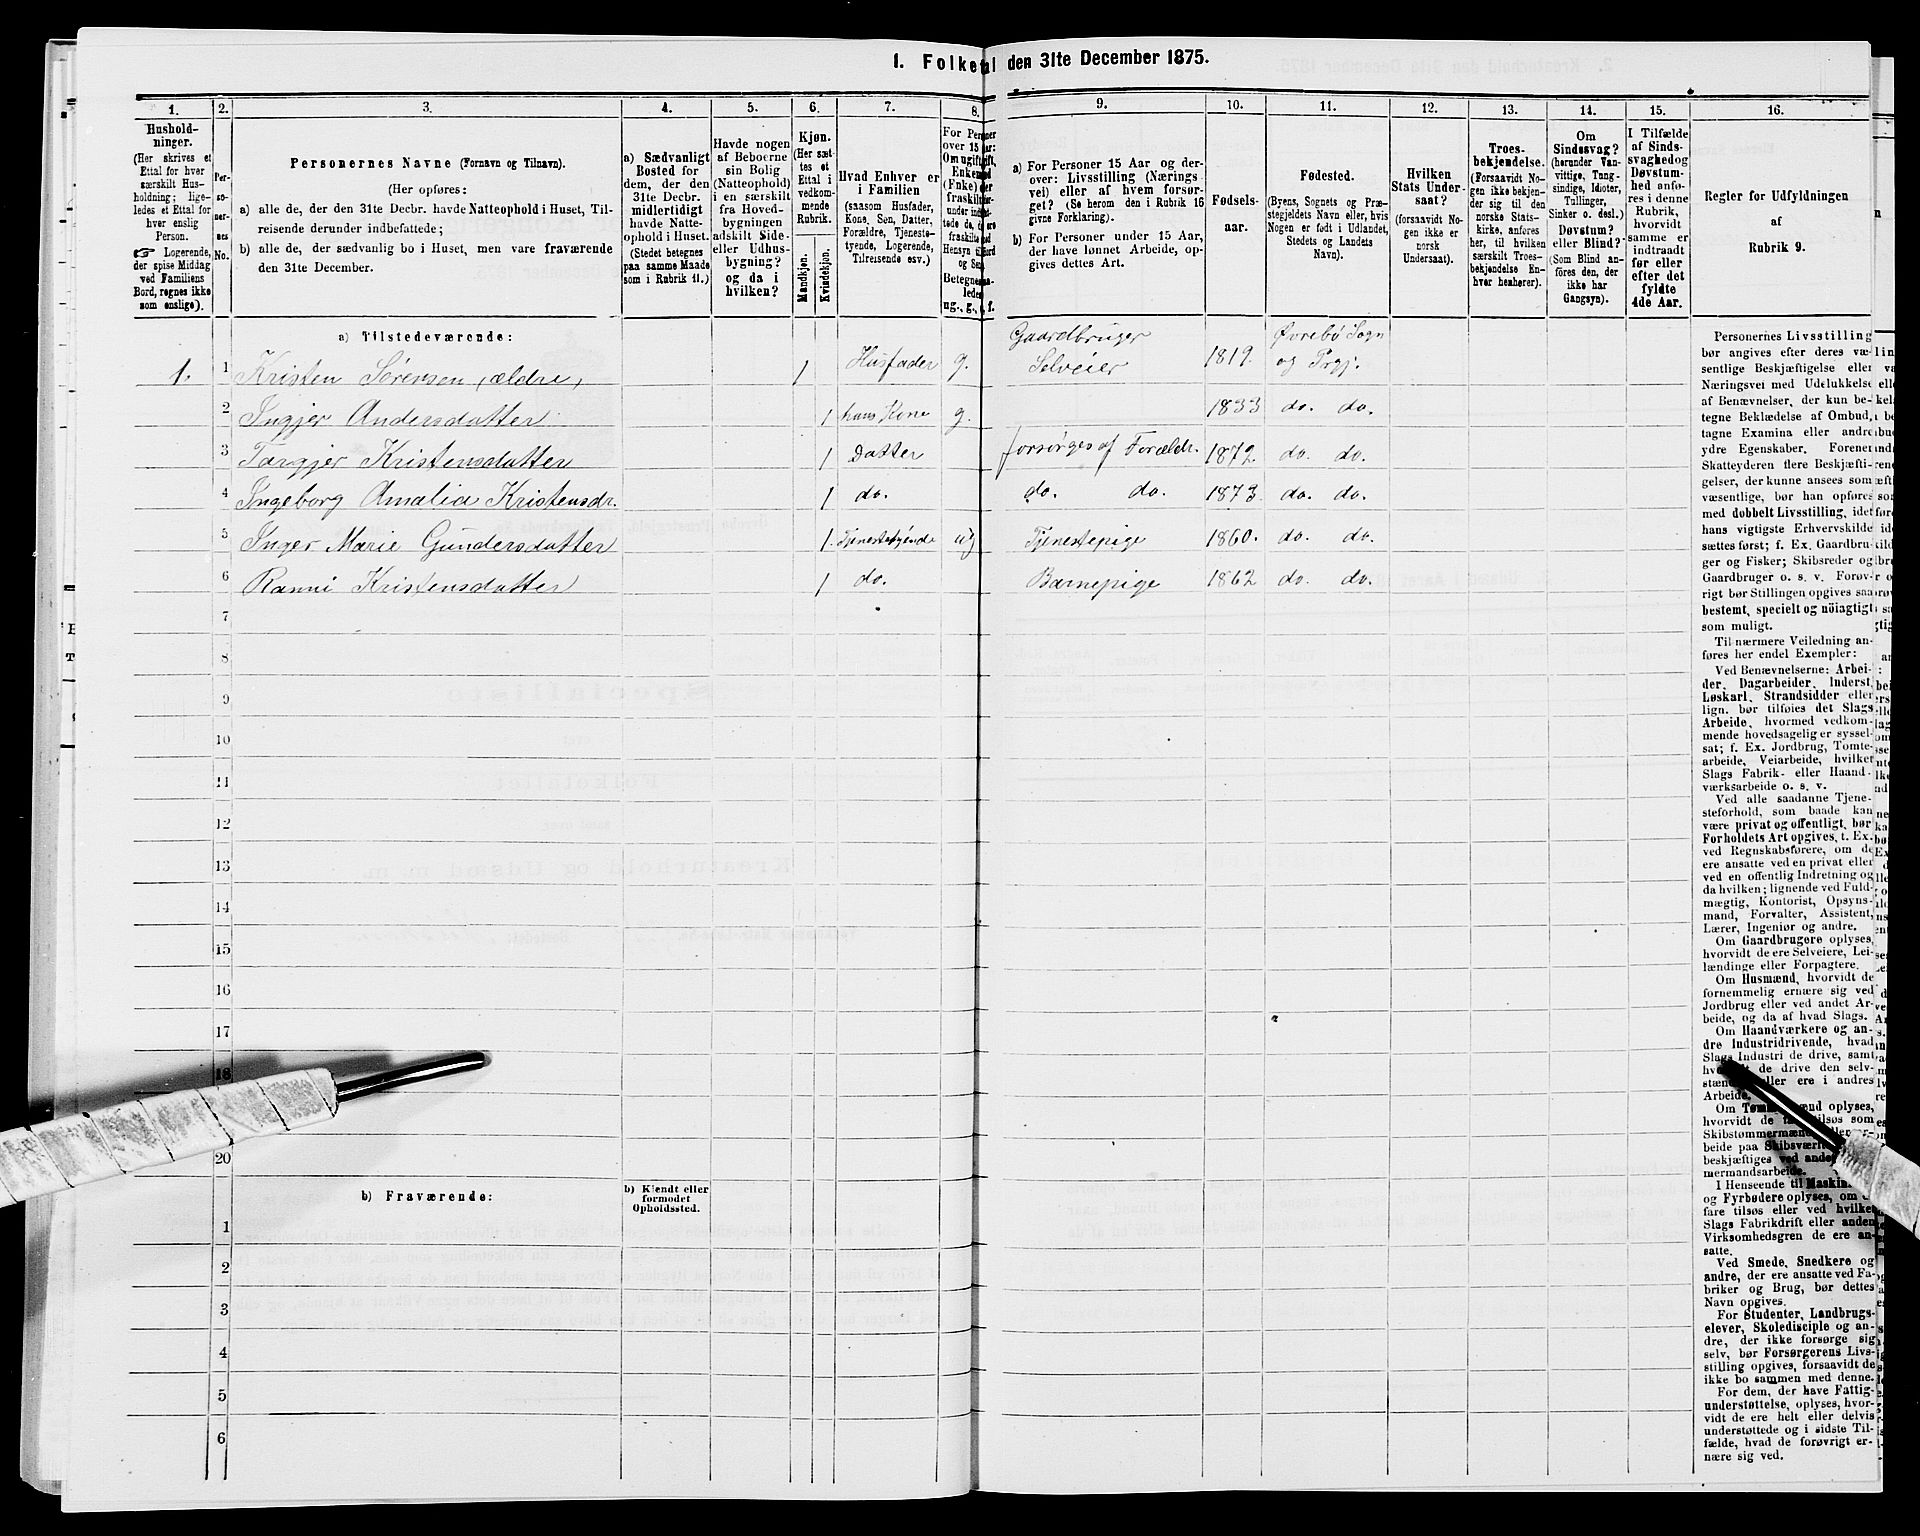 1. Folketal den 31te December 1875.
1.
Hushold-
ninger.
(Her skrives et
Ettal for hver
særskilt Hus-
holdning; lige-
ledes et Ettal for
hver enslig
Person.
☞ Logerende,
der spise Middag
ved Familiens
Bord, regnes ikke
som enslige).
2.
Per-
so-
ner-
nes
No.
3.
Personernes Navne (Fornavn og Tilnavn).
(Her opføres:
a) alle de, der den 31te Decbr. havde Natteophold i Huset, Til-
reisende derunder indbefattede;
b) alle de, der sædvanlig bo i Huset, men vare fraværende
den 31te December.
4.
a) Sædvanligt
Bosted for
dem, der den
31te Decbr.
midlertidigt
havde Natte-
ophold i Huset.
(Stedet betegnes
paa samme Maade
som i Rubrik 11.)
5.
Havde nogen
af Beboerne
sin Bolig
(Natteophold)
i en særskilt
fra Hoved-
bygningen
adskilt Side-
eller Udhus-
bygning?
og da i
hvilken?
6.
Kjøn.
(Her sæt-
tes et
Ettal i
vedkom-
mende
Rubrik.
Mandkjøn.
Kvindekjøn.
7.
Hvad Enhver er
i Familien
(saasom Husfader,
Kone, Søn, Datter,
Forældre, Tjeneste-
tyende, Logerende,
Tilreisende osv.)
8.
For Personer
over 15 Aar:
Om ugift,
Enkemand
(Fnke)
fraskilt
Betegnes
ledes
ug., g.,
9.
a) For Personer 15 Aar og der-
over: Livsstilling (Nærings
vei) eller af hvem forsør-
get? (Se herom den i Rubrik 16
givne Forklaring).
b) For Personer under 15 Aar,
der have lønnet Arbeide, op-
gives dettes Art.
10.
Fødsels-
aar.
11.
Fødested.
(Byens, Sognets og Præ-
stegjeldets Navn eller, hvis
Nogen er født i Udlandet,
Stedets og Landets
Navn).
12.
Hvilken
Stats Under-
saat?
(forsaavidt No-
gen ikke er
norsk
Undersaat).
13.
Troes-
bekjendelse.
(Forsaavidt No-
gen ikke bekjen-
der sig til den
norske Stats-
kirke, anføres
her, til hvilken
særskilt Troes-
bekjendelse En-
hver henhører).
14.
Om
Sindssvag?
(herunder Van-
vittige, Tung-
sindige, Idioter,
Tullinger,
Sinker o. desl.)
Døvstum?
eller Blind?
(Som Blind an-
føres den, der
ikke har
Gangsyn).
15.
I Tilfælde
af Sinds-
svaghed og
Døvstum-
hed anfø-
res i denne
Rubrik,
hvorvidt
samme er
indtraadt
før eller
efter det
fyldte
4de Aar.
16.
Regler for Udfyldningen
af
Rubrik 9.
a) Tilstedeværende:
1. 1 Kristen Sørensen, ældre, 1 Husfader g. Gaardbruger Selveier 1819. Øvrebø Sogn og Prgj.
2 Ingjer Andersdatter 1 hans Kone g. 1833 do. do.
3 Targjer Kristensdatter 1 Datter forsørges af Forældr. 1872 do. do.
4 Ingeborg Amalia Kristensdr. 1 do. do. do. 1873. do. do.
5 Inger Marie Gundersdatter 1. Tjenestetyende ug Tjenestepige 1860. do. do.
6 Ranni Kristensdatter 1 do. Barnepige 1862 do. do.
7
8
9
10
11
12
13
14
15
16
17
18
20
b) Fraværende:
b) Kjendt eller
formodet
Opholdssted.
1
2
3
4
5
6
Personernes Livsstilling
bør angives efter deres væ-
sentlige Beskjæftigelse eller
Næringsvei med Udelukkelse
af Benævnelser, der kun be-
tegne Beklædelse af Ombud,
tagne Examina eller andre
ydre Egenskaber. Forener
Skatteyderen flere Beskjæfti-
gelser, der kunne ansees som
væsentlige, bør han opføres
med dobbelt Livsstilling, idet
hans vigtigste Erhvervskilde
sættes først; f. Ex. Gaardbru-
ger og Fisker; Skibsreder og
Gaardbruger o. s. v. Forøv-
rigt bør Stillingen opgives saa
bestemt, specielt og nöiagtigt
som muligt.
Til nærmere Veiledning an-
føres her endel Exempler:
Ved Benævnelserne: Arbei-
der, Dagarbeider, Inderst,
Løskarl, Strandsidder eller
lign. bør tilføies det Slags
Arbeide, hvormed vedkom-
mende hovedsagelig er syssel-
sat; f. Ex. Jordbrug, Tomte-
arbeide, Veiarbeide, hvilket
Slags Fabrik- eller Haand-
værksarbeide o. s. v.
Ved alle saadanne Tjene-
steforhold, som baade kan
være privat og offentligt, bør
Forholdets Art opgives, t. Ex.
ved Regnskabsførere, om de
ere ansatte ved en privat eller
ved en offentlig Indretning og
da hvilken; lignende ved Fuld-
mægtig, Kontorist, Opsyns-
mand, Forvalter, Assistent,
Lærer, Ingeniør og andre.
Om Gaardbrugere oplyses,
hvorvidt de ere Selveiere, Lei-
lændinge eller Forpagtere.
Om Husmænd, hvorvidt de
fornemmelig ernære sig ved
Jordbrug eller ved andet Ar-
beide, og da af hvad Slags.
Om Haandværkere og an-
dre Industridrivende, hvad
Slags Industri de drive, samt
de drive den selv-
eller ere i andres
Arbeide.
Om oplyses,
hvorvidt de som
Skibstømmermænd
beide paa
beskjæftiges ved
mermandsarbeide.
I Henseende til
og Fyrbødere oplyses, om
fare tilsøs eller ved hvilket
Slags Fabrikdrift eller anden
Virksomhedsgren de ere an-
satte.
Ved Smede, Snedkere og
andre, der ere ansatte ved Fa-
briker og Brug, bør dettes
Navn opgives.
For Studenter, Landbrugs-
elever, Skoledisciple og an-
dre, der ikke forsørge sig
selv, bør Forsørgerens Livs-
stilling opgives, forsaavidt de
ikke bo sammen med denne.
For dem, der have Fattig-
understøttelse, oplyses, hvor-
vidt de ere helt eller delvis
understøttede og i sidste Til-
fælde, hvad de forøvrigt er-
nære sig ved.